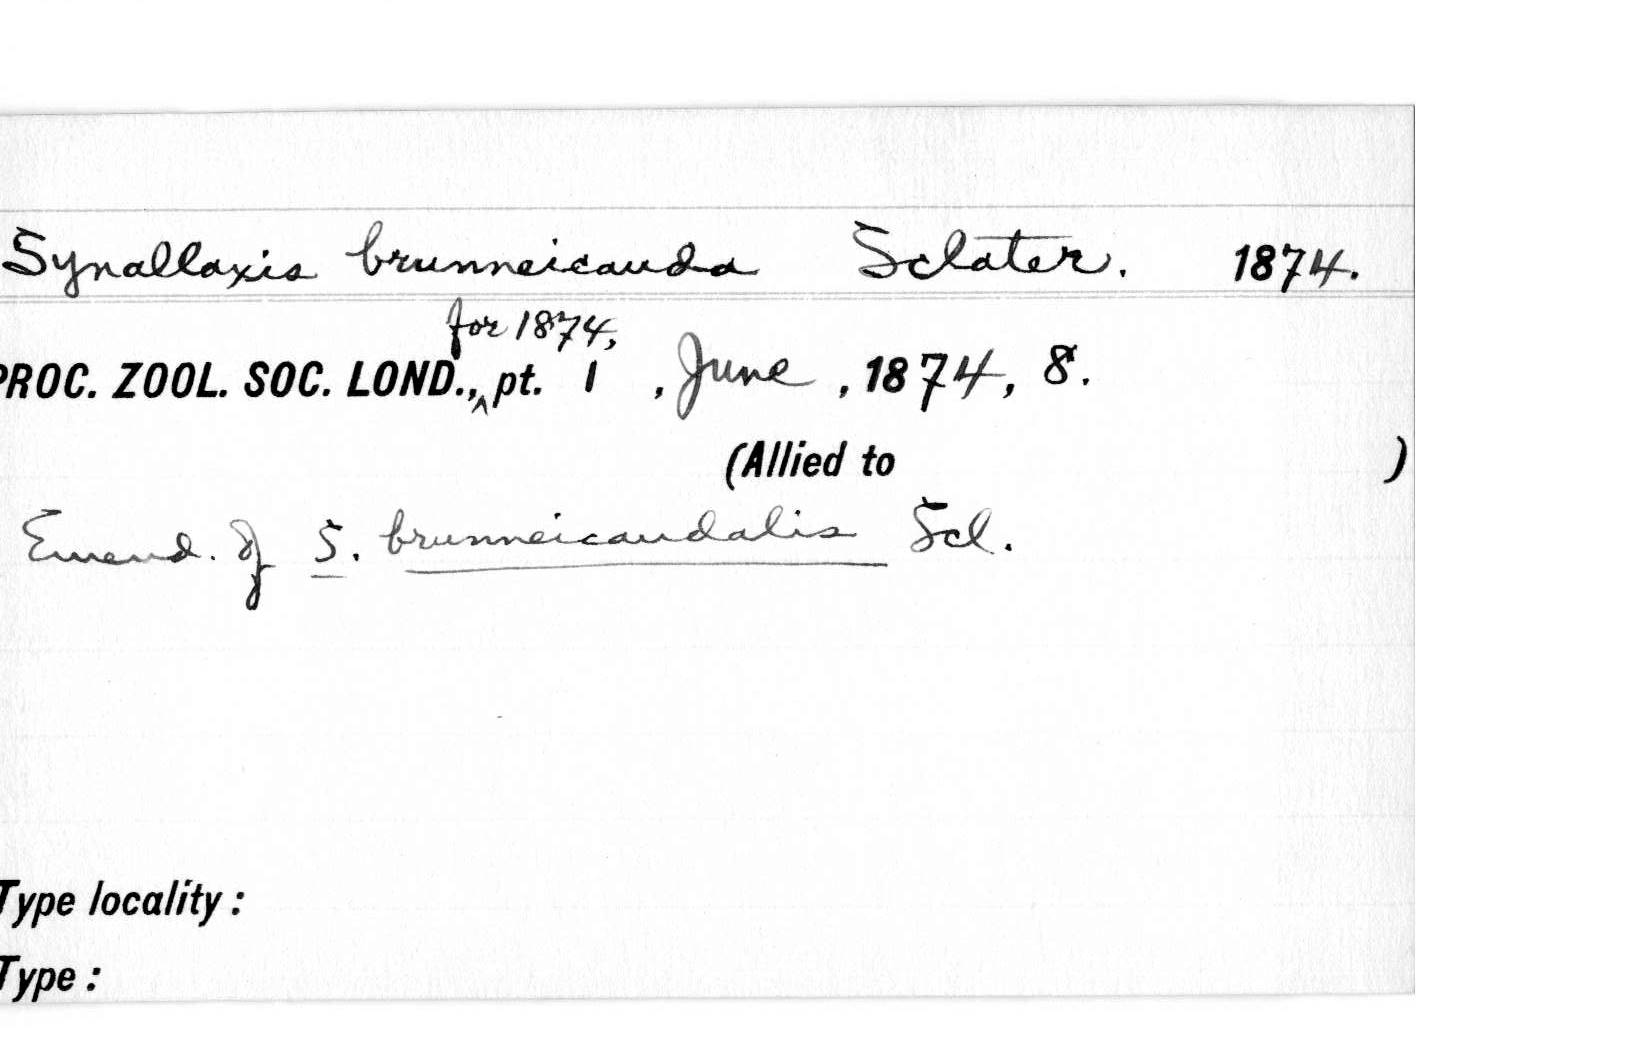 Synallaxis brunneicauda Sclater. 1874.
for 1874,
PROC. ZOOL. SOC. LOND.,^ pt. 1 , June , 1874, 8.
(Allied to )
Emend. of S. brunneicaudalis Scl.
Type locality :
Type :